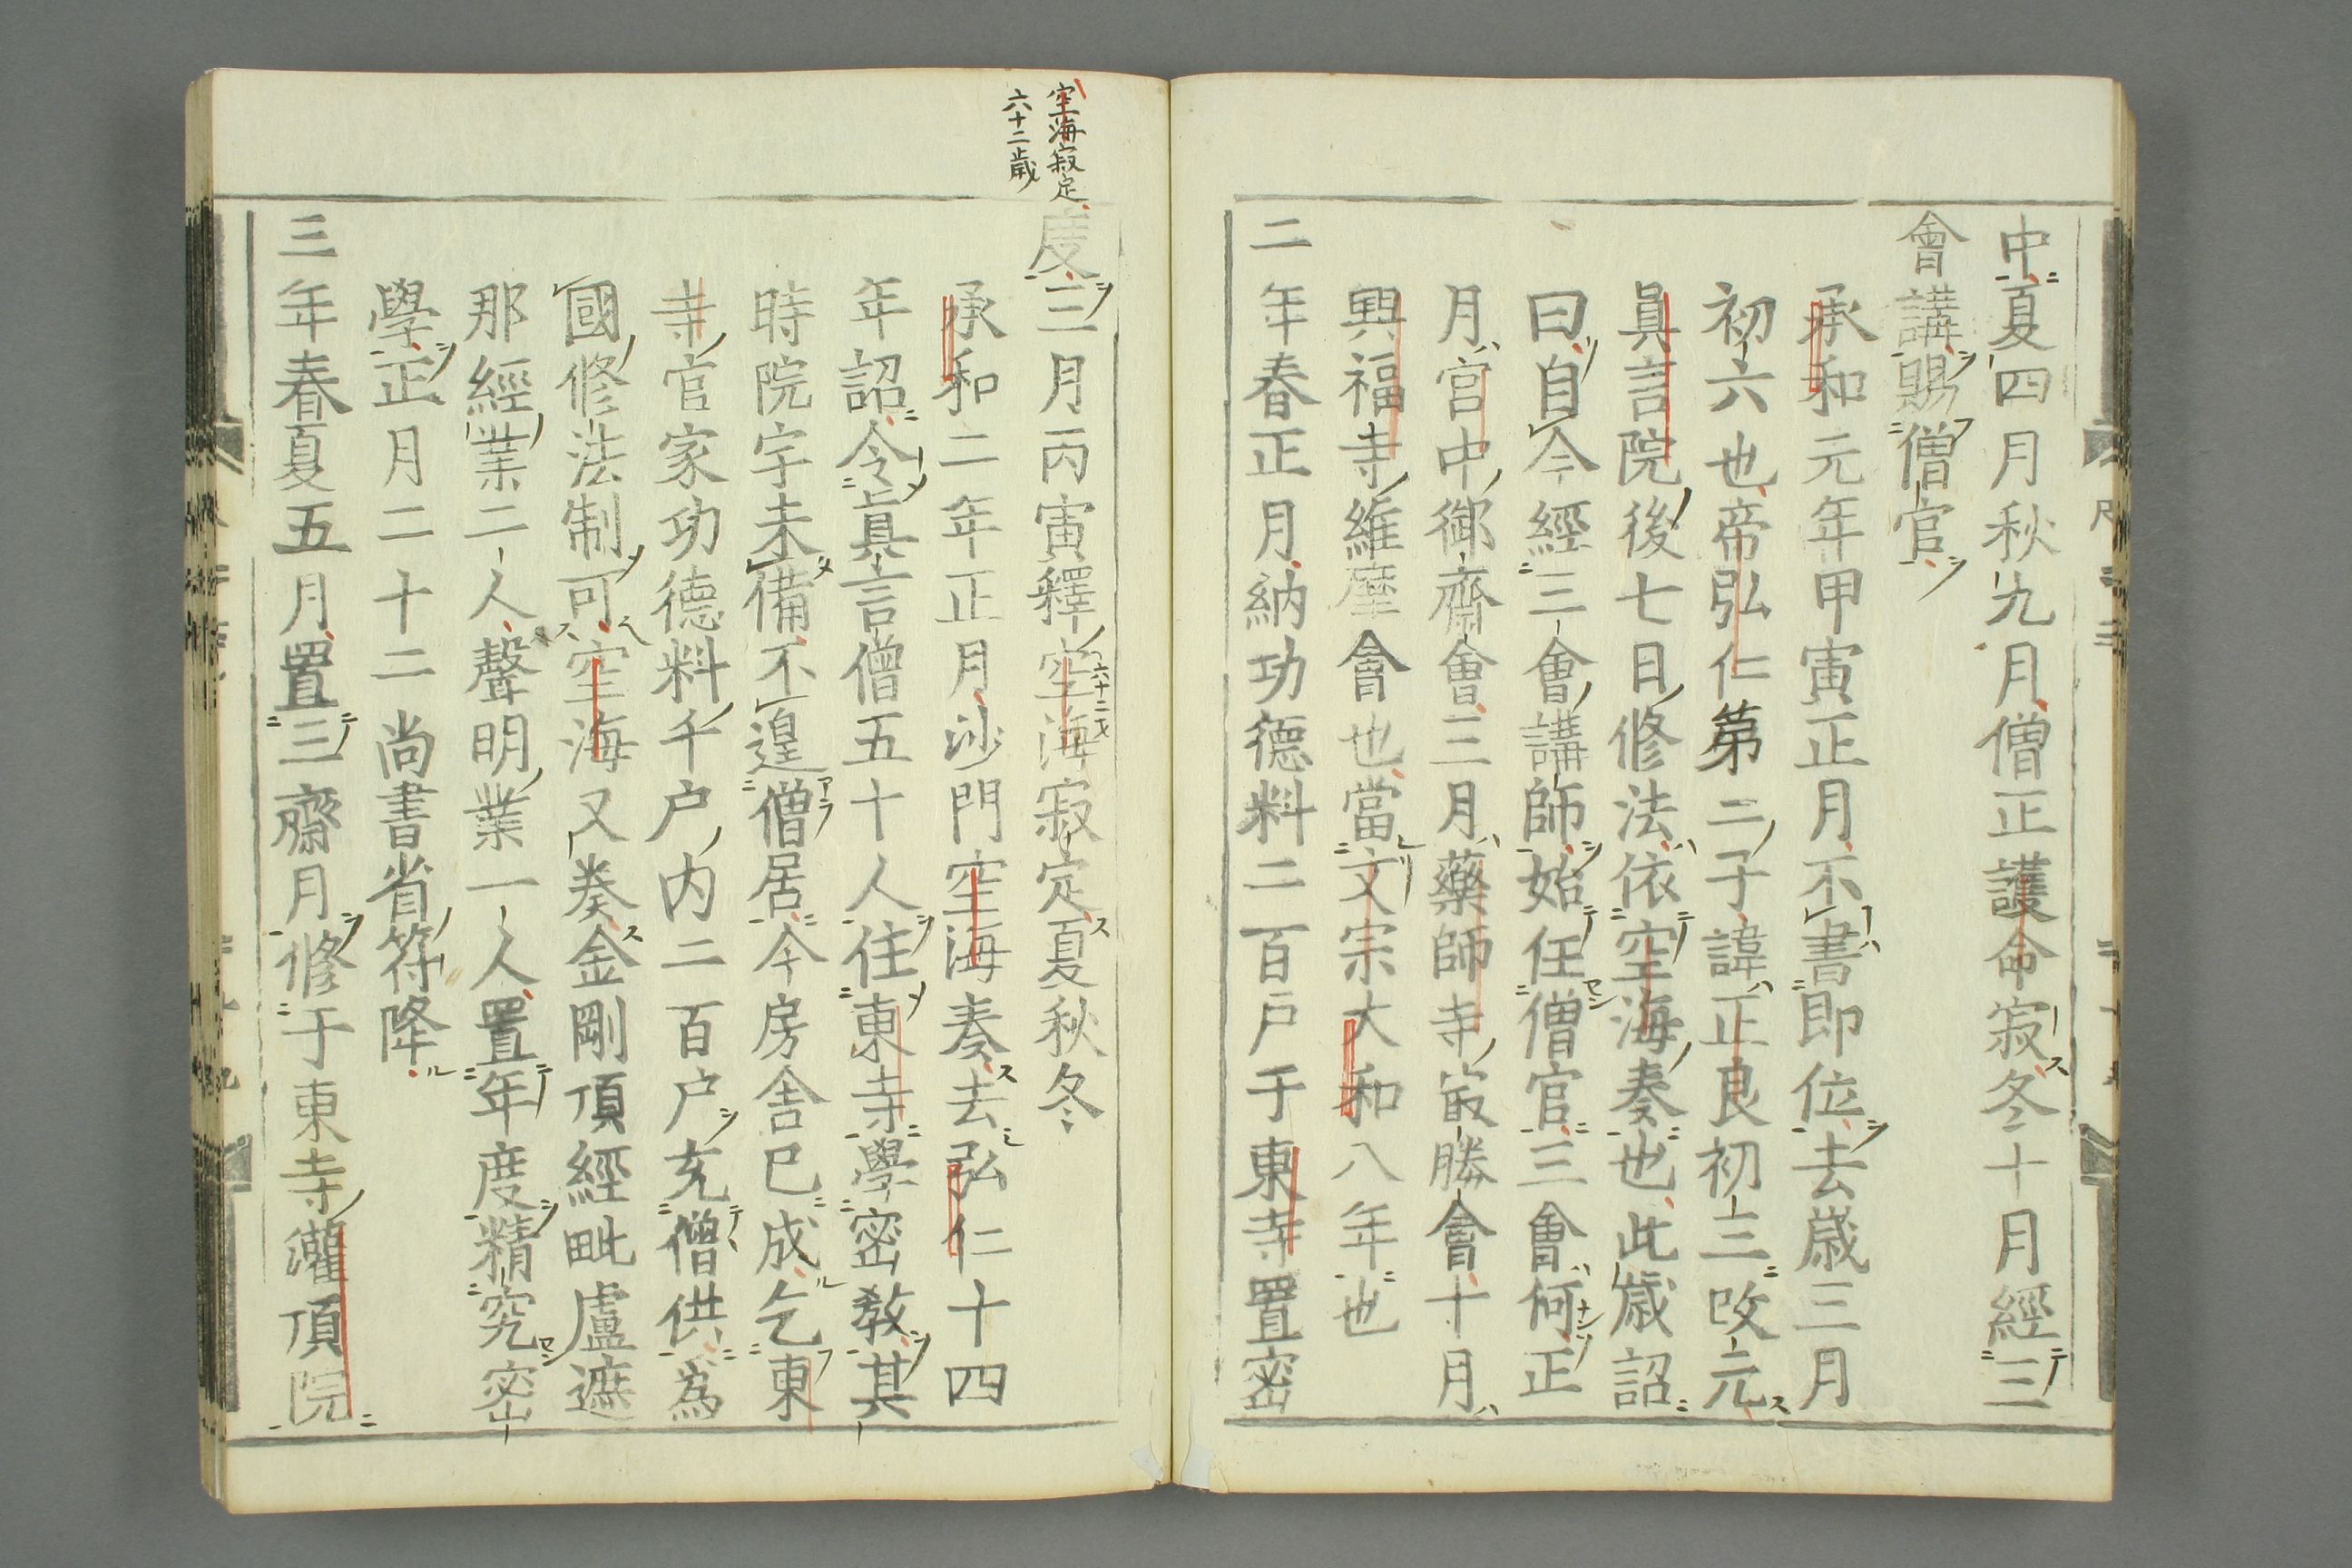 中夏四月秋九月僧正護命寂冬十月經三
會講賜僧官
承和元年甲寅正月不書即位去歳三月
初六也帝弘仁第二子諱正良初三改元
眞言院後七日修法依空海奏也此歳詔
曰自今經三會講師始任僧官三會何正
月宮中御齋會三月藥師寺最勝會十月
興福寺維摩會也當文宗大和八年也
二年春正月納功德料二百戸于東寺置密
空海寂定
六十二歳
度三月丙寅釋空海寂定夏秋冬
六十二才
承和二年正月沙門空海奏去弘仁十四
年詔令眞言僧五十人住東寺學密教其
時院宇未備不遑僧居今房舎已成乞東
寺官家功德料千户内二百户充僧供爲
國修法制可空海又奏金剛頂經毗盧遮
那經業二人聲明業一人置年度精究密
學正月二十二尚書省符降
三年春夏五月置三齋月修于東寺灌頂院